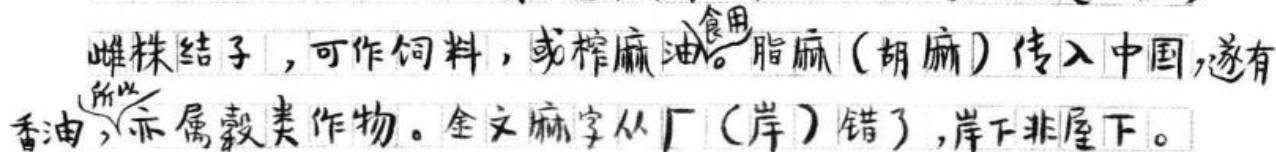 雌株结子，可作饲料，或榨麻油食用。脂麻（胡麻）传入中国，遂有
香油，所以亦属穀类作物。金文麻字从厂（岸）错了，岸下非屋下。